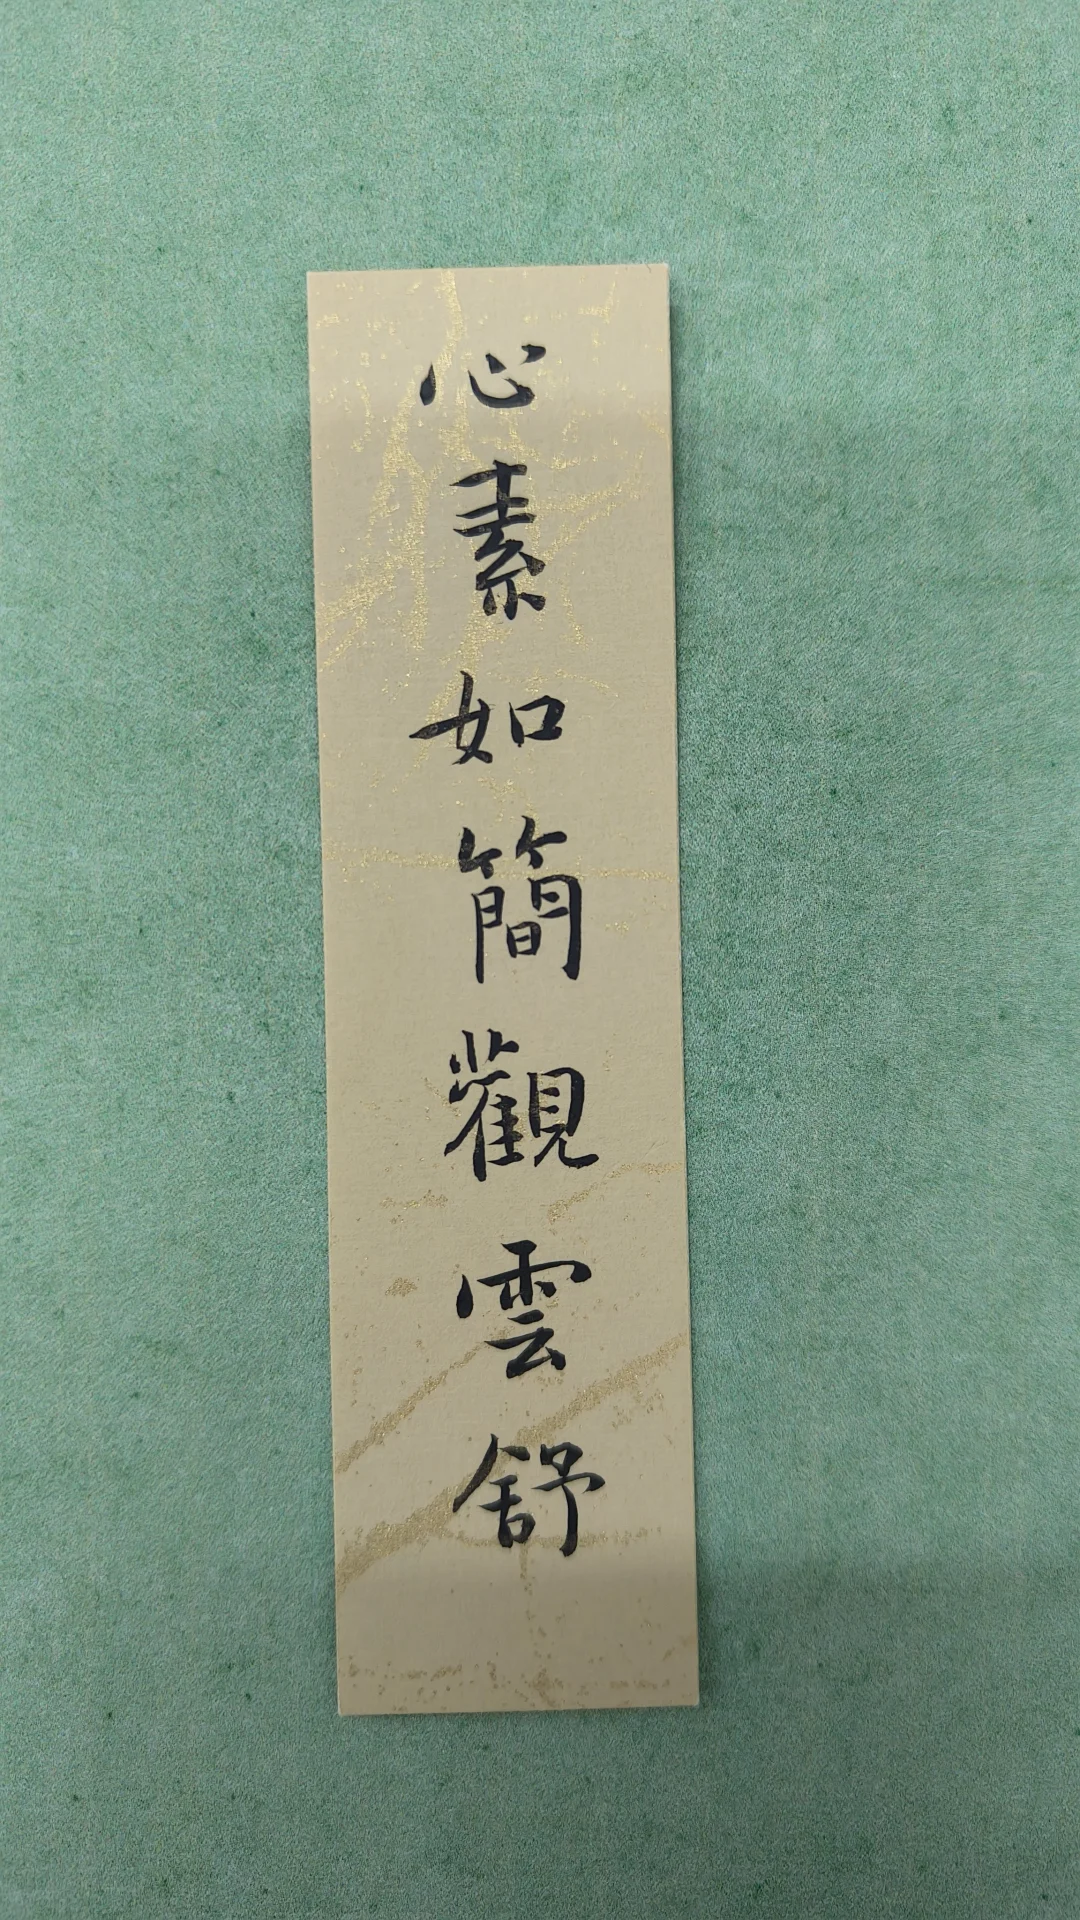 心素如簡觀雲舒